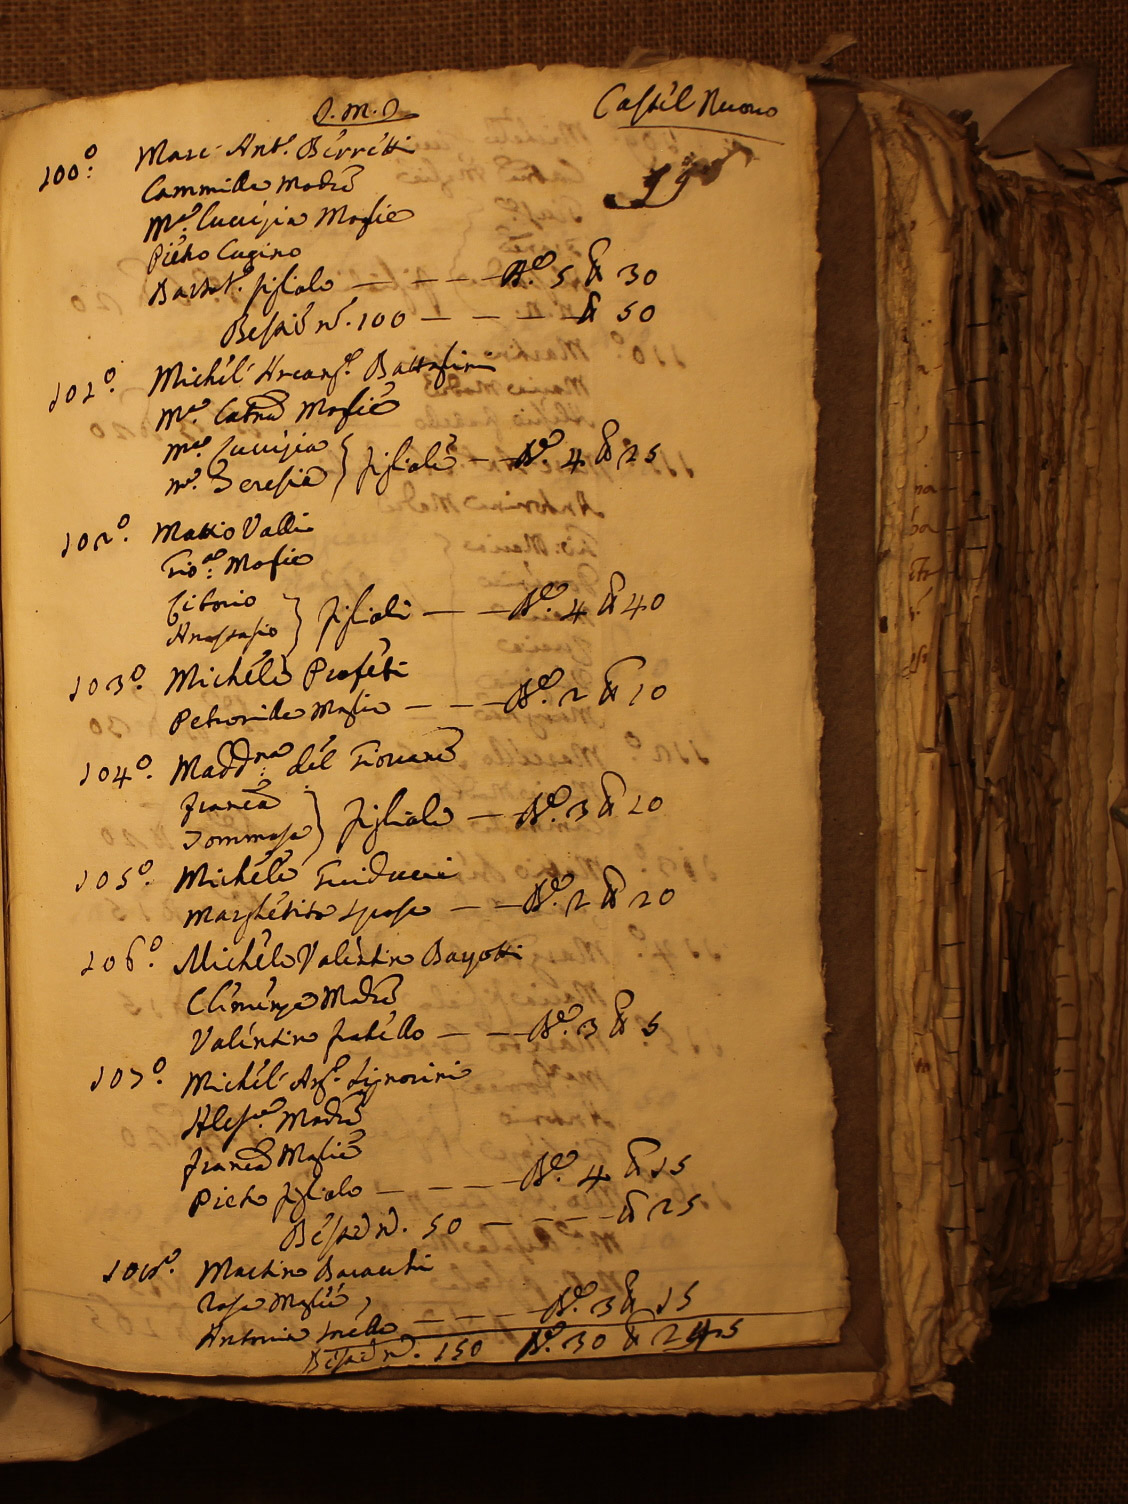 D. M. D
Castel Nuovo
19
100.° Marc' Ant.° Berretti
Cammilla Madre
M.a Lucrezia Moglie
Pietro Cugino
Bartol.° figliolo — — N.° 5 & 30
Bestie n.° 100 — — — & 50
101.° Michel' Arcang.°
M.a Cat.na Moglie
M.a Lucrezia
M.a Teresia } figliole — N.° 4 & 25
102.° Matteo Valli
Gio.a Moglie
Liborio
Anastasio } figlioli — — N.° 4 & 40
103.° Michele Profeti
Petronilla Moglie — — N.° 2 & 10
104.° Madd.na del Giovane
Franc.a
Tommasa } figliole — N.° 3 & 20
105.° Michele Guiducci
Margherita sposa — — N.° 2 & 20
106.° Michele Valentino
Clemenza Madre
Valentino fratello — — N.° 3 & 5
107.° Michel' Ang.° Signorini
Aless.a Madre
Franc.a Moglie
Pietro figliolo — — — N.° 4 & 15
Bestie n.° 50 — — — & 25
108.° Martino
Rosa Moglie
Antonia — — N.° 3 & 15
Bestie n.° 150 N.° 30 & 245